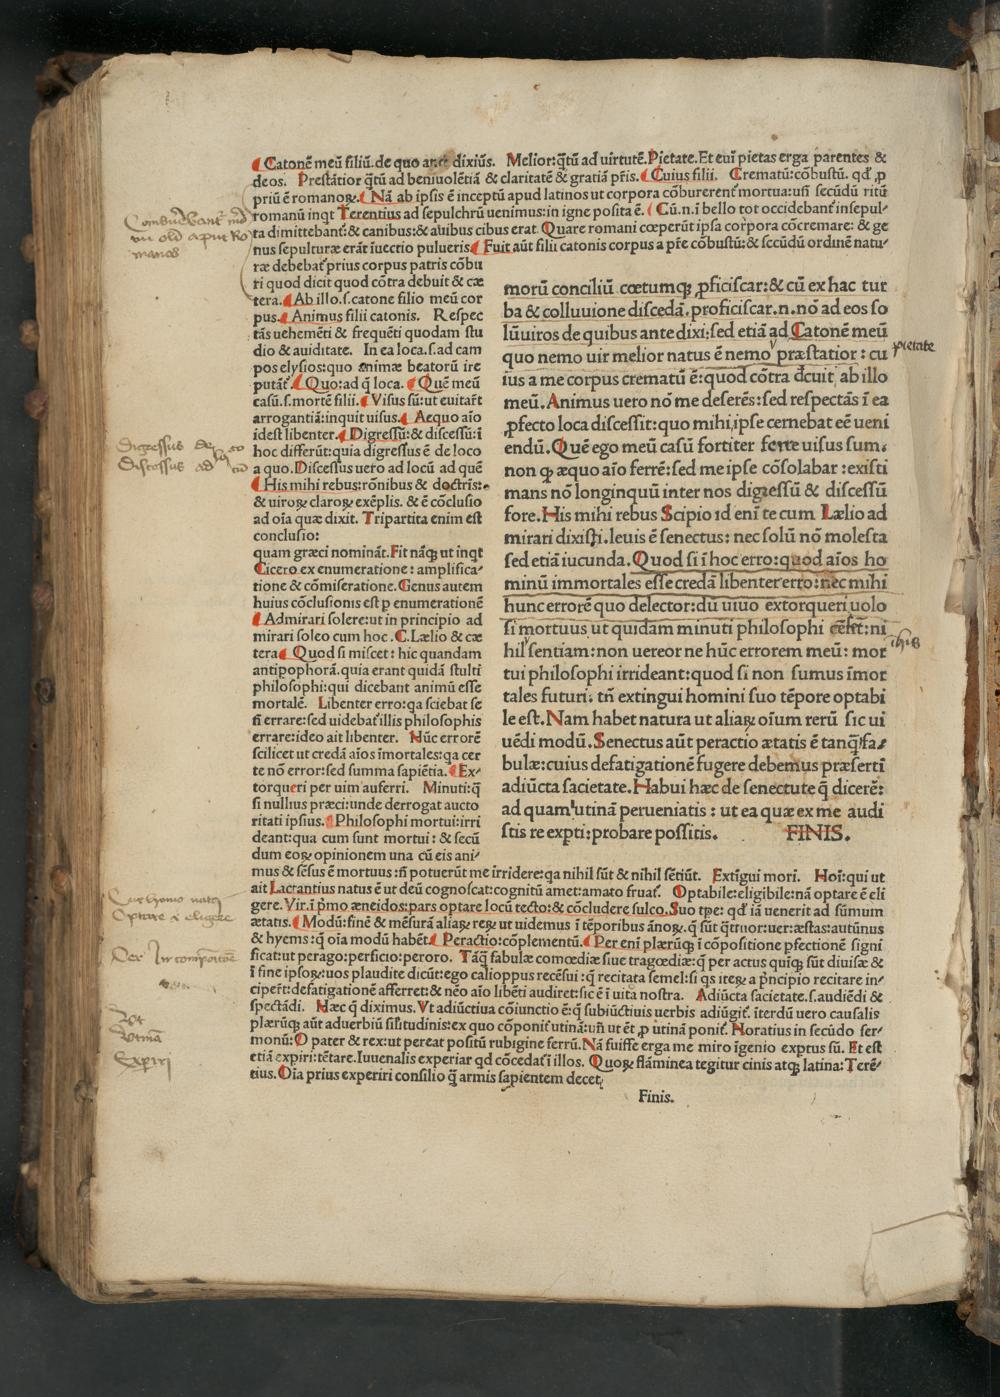 ¶ Catonē meū filiū.de quo ante dixiūs. Melior:q̄tū ad uirtutē.Pietate.Et eui pietas erga parentes &
deos. Prestātior q̄tū ad beniuolētiā & claritatē & gratiā pr̄is.¶ Cuius filii. Crematū:cōbustū. qd̓ ꝓ
priū ē romanoꝝ.¶ Nā ab ipsis ē inceptū apud latinos ut corpora cōburerent̄ mortua:uñ secūdū ritū
romanū inqt Terentius ad sepulchrū uenimus:in igne posita ē. ¶ Cū.n.i bello tot occidebant̄ insepul-
ta dimittebant̄:& canibus:& auibus cibus erat. Quare romani cœperūt ipsa corpora cōcremare: & ge
nus sepulturæ erāt iuectio pulueris.¶ Fuit aūt filii catonis corpus a pr̄e cōbustū:& secūdū ordinē natu-
ræ debebat̄ prius corpus patris cōbu
ri quod dicit quod cōtra debuit & cæ
tera.¶ Ab illo.s.catone filio meū cor
pus.¶ Animus filii catonis. Respec
tās uehemēti & frequēti quodam stu
dio & auiditate. In ea loca.s.ad cam
pos elysios:quo animæ beatorū ire
putāt̄.¶ Quo:ad q̄ loca. ¶ Quē meū
casū.s.mortē filii.¶ Visus sū:ut euitar̄t
arrogantiā:inquit uisus.¶ Aequo aīo
idest libenter.¶ Digressū:& discessū:ī
hoc differūt:quia digressus ē de loco
a quo.Discessus uero ad locū ad quē
¶ His mihi rebus:rōnibus & doctrīs:
& uiroꝝ claroꝝ exēplis. & ē cōclusio
ad oīa quæ dixit. Tripartita enim est
conclusio:
quam græci nomināt.Fit nāq̄ ut inqt
Cicero ex enumeratione : amplifica-
tione & cōmiseratione. Genus autem
huius cōclusionis est p enumerationē
¶ Admirari solere:ut in principio ad
mirari soleo cum hoc .C.Lælio & cæ
tera¶ Quod si miscet: hic quandam
antipophorā.quia erant quidā stulti
philosophi:qui dicebant animū esse
mortalē. Libenter erro:qa sciebat se
ñ errare:sed uidebat̄ illis philosophis
errare:ideo ait libenter. Hūc errorē
scilicet ut credā aīos īmortales:qa cer
te nō error:sed summa sapiētia.¶ Ex-
torqueri per uim auferri. Minuti:q̄
si nullius præci:unde derrogat aucto
ritati ipsius.¶ Philosophi mortui:irri
deant:qua cum sunt mortui : & secū
dum eoꝝ opinionem una cū eis ani-
mus & sēsus ē mortuus :ñ potuerūt me irridere:qa nihil sūt & nihil sētiūt. Extīgui mori. Hoī:qui ut
ait Lactantius natus ē ut deū cognoscat:cognitū amet:amato fruat̄. Optabile:eligibile:nā optare ē eli
gere. Vir.ī p̄mo æneidos:pars optare locū tecto:& cōcludere sulco.Suo tpe: qd̓ iā uenerit ad sūmum
ætatis.¶ Modū:finē & mēsurā aliaꝝ reꝝ ut uidemus ī tēporibus ānoꝝ.q̄ sūt q̄ttuor:uer:æstas:autūnus
& hyems :q̄ oīa modū habēt.¶ Peractio:cōplementū.¶ Per eni plærūq̄ ī cōpositione pfectionē signi
ficat:ut perago:perficio:peroro. Tāq̄ fabulæ comœdiæ siue tragœdiæ:q̄ per actus quiq̄ sūt diuisæ &
ī fine ipsoꝝ:uos plaudite dicūt:ego calioppus recēsui :q̄ recitata semel:si qs iteꝝ a pn̄cipio recitare in-
ciper̄t:defatigationē afferret:& nēo aīo libēti audiret:sic ē ī uita nostra. Adiūcta sacietate.s.audiēdi &
spectādi. Hæc q̄ diximus. Vt adiūctiua cōiunctio ē:q̄ subiūctiuis uerbis adiūgit̄. iterdū uero causalis
plærūq̄ aūt aduerbiū sil̄itudinis:ex quo cōponit̄ utinā:uñ ut ēt ꝓ utinā ponit̄. Horatius in secūdo ser-
monū:O pater & rex:ut pereat positū rubigine ferrū.Nā fuisse erga me miro īgenio exptus sū. Et est
etiā expiri:tētare.Iuuenalis experiar qd cōcedat̄ ī illos. Quoꝝ flāminea tegitur cinis atq̄ latina: Terē-
tius.Oīa prius experiri consilio q̄ armis sapientem decet
Finis.
morū conciliū cœtumq̄ ꝓficiscar:& cū ex hac tur
ba & colluuione discedā.proficiscar.n.nō ad eos so
lū uiros de quibus ante dixi:sed etiā ad Catonē meū
quo nemo uir melior natus ē nemo præstatior : cu
ius a me corpus crematū ē:quod cōtra dcuit ab illo
meū.Animus uero nō me deserēs:sed respectās ī ea
ꝓfecto loca discessit:quo mihi ipse cernebat eē ueni
endū. Quē ego meū casū fortiter ferre uisus sum.
non qꝫ æquo aīo ferrē:sed me ipse cōsolabar :existi
mans nō longinquū inter nos digressū & discessū
fore.His mihi rebus Scipio id eni te cum Lælio ad
mirari dixisti.leuis ē senectus: nec solū nō molesta
sed etiā iucunda. Quod si ī hoc erro:quod aīos ho
minū immortales esse credā libenter erro:nec mihi
hunc errorē quo delector:dū uiuo extorqueri uolo
si mortuus ut quidam minuti philosophi cēsēt:ni
hil sentiam:non uereor ne hūc errorem meū: mor
tui philosophi irrideant:quod si non sumus īmor
tales futuri: tñ extingui homini suo tēpore optabi
le est.Nam habet natura ut aliaꝝ oīum rerū sic ui
uēdi modū.Senectus aūt peractio ætatis ē tanq̄ fa-
bulæ:cuius defatigationē fugere debemus præserti
adiūcta sacietate.Habui hæc de senectute q̄ dicerē:
ad quam utinā perueniatis : ut ea quæ ex me audi
stis re expti:probare possitis. FINIS.
pietate
Digressus de loco
Discessus ad
Cur homo natus
Optare ē eligere
Per In compositōe
Ut
Utinā
Experiri